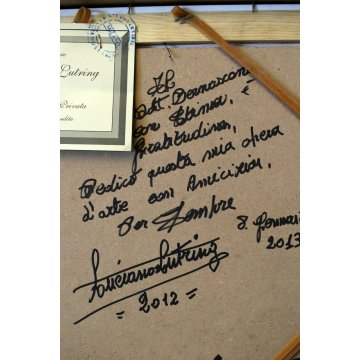 re
Lutring
Privata
Al
Dott Bernasconi
con Stima, e
Gratitudine,
Dedico questa mia opera
d'arte con Amicizia,
Per Sempre
8. Gennaio
2013
Luciano Lutring
= 2012 =